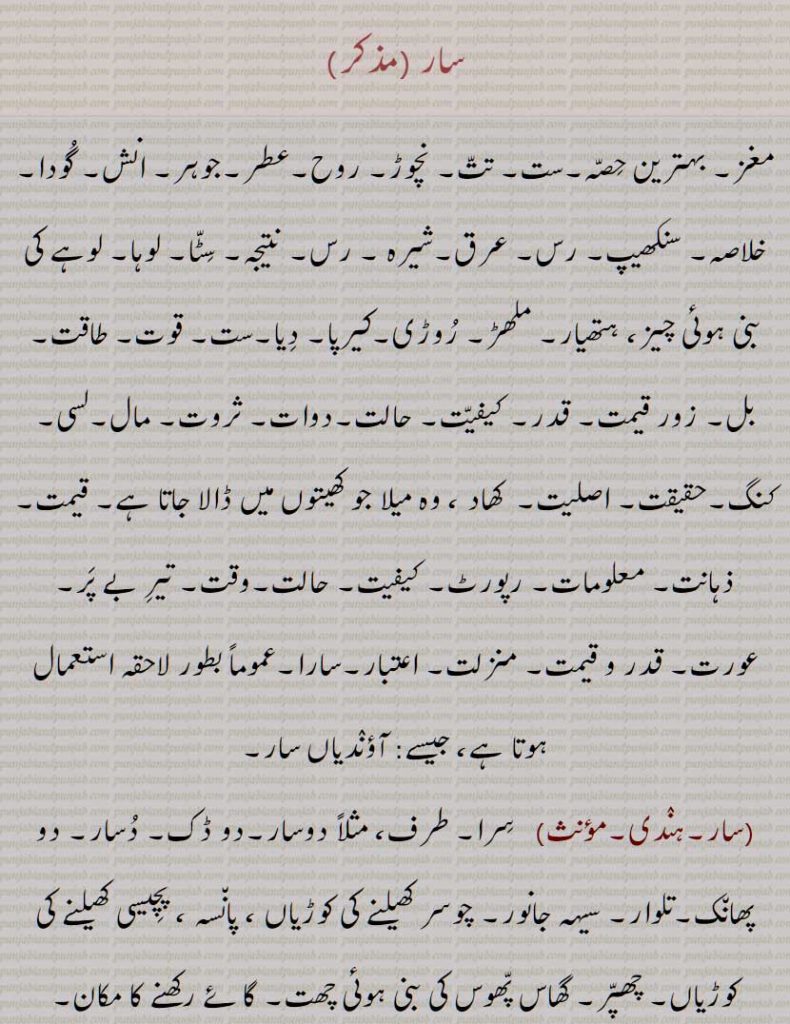 سار (مذکر)
مغز۔ بہترین حِصّہ۔ست۔ تتّ۔ نچوڑ۔ روح۔عطر۔جوہر۔ انش۔ گُودا۔
خلاصہ۔ سنکھیپ۔ رس۔ عرق۔شیرہ ۔ رس۔ نتیجہ۔ سِٹّا۔ لوہا۔ لوہے کی
بنی ہوئی چیز، ہتھیار۔ ملھڑ۔ رُوڑی۔کیرپا۔ دِیا۔ست۔ قوت۔ طاقت۔
بل۔ زور قیمت۔ قدر۔ کیفیّت۔ حالت۔دوات۔ ثروت۔ مال۔لسی۔
کنگ۔حقیقت۔ اصلیت۔ کھاد ، وہ میلا جو کھیتوں میں ڈالا جاتا ہے۔ قیمت۔
ذہانت۔ معلومات۔ رپورٹ۔ کیفیت۔ حالت۔وقت۔ تیرِ بے پَر۔
عورت۔ قدر و قیمت۔ منزلت۔ اعتبار۔سارا۔عموماً بطور لاحقہ استعمال
ہوتا ہے، جیسے: آؤنْدیاں سار۔
(سار۔ہنْدی۔مؤنث) سِرا۔ طرف، مثلاً دوسار۔دو ڈک۔ دُسار۔ دو
پھانْک۔تلوار۔ سیہہ جانور۔ چوسر کھیلنے کی کوڑیاں ، پانْسہ ، پچِیسی کھیلنے کی
کوڑیاں۔ چھپّر۔ گھاس پھُوس کی بنی ہوئی چھت۔ گائے رکھنے کا مکان۔